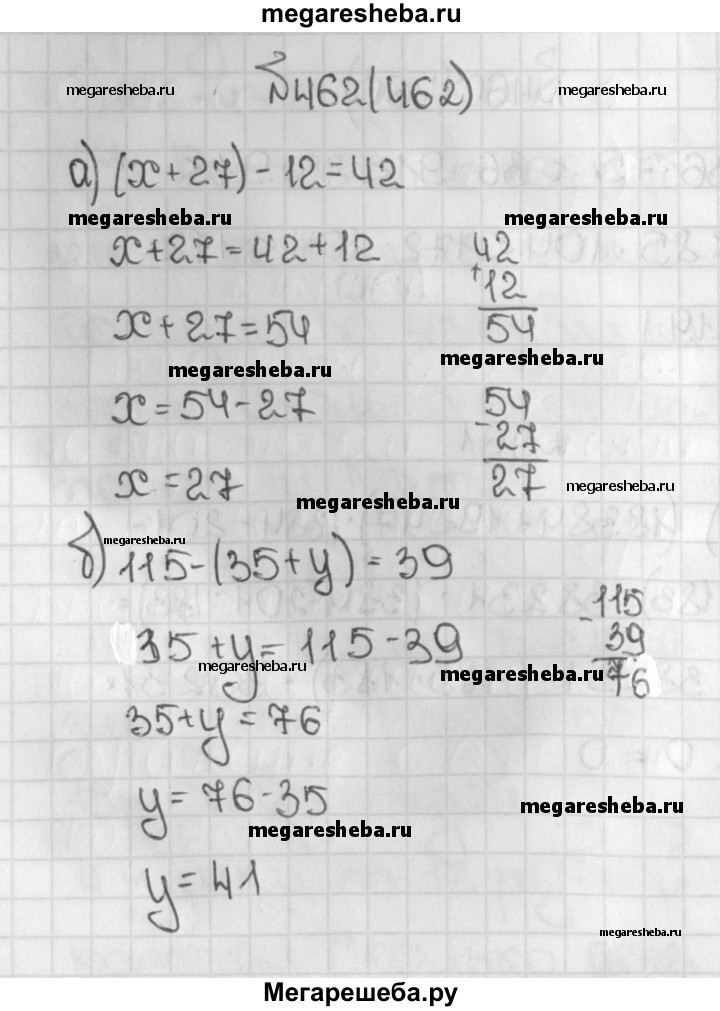 megaresheba.ru
megaresheba.ru №462(462) megaresheba.ru
а) (x+27)-12=42
megaresheba.ru megaresheba.ru
x+27=42+12 42
+12
x+27=54 54
megaresheba.ru megaresheba.ru
x=54-27 54
-27
x=27 27 megaresheba.ru
megaresheba.ru
megaresheba.ru
б) 115-(35+y)=39
-115
35+y=115-39 39
megaresheba.ru megaresheba.ru 76
35+y=76
y=76-35 megaresheba.ru
megaresheba.ru
y=41
megaresheba.ru
Мегарешеба.ру